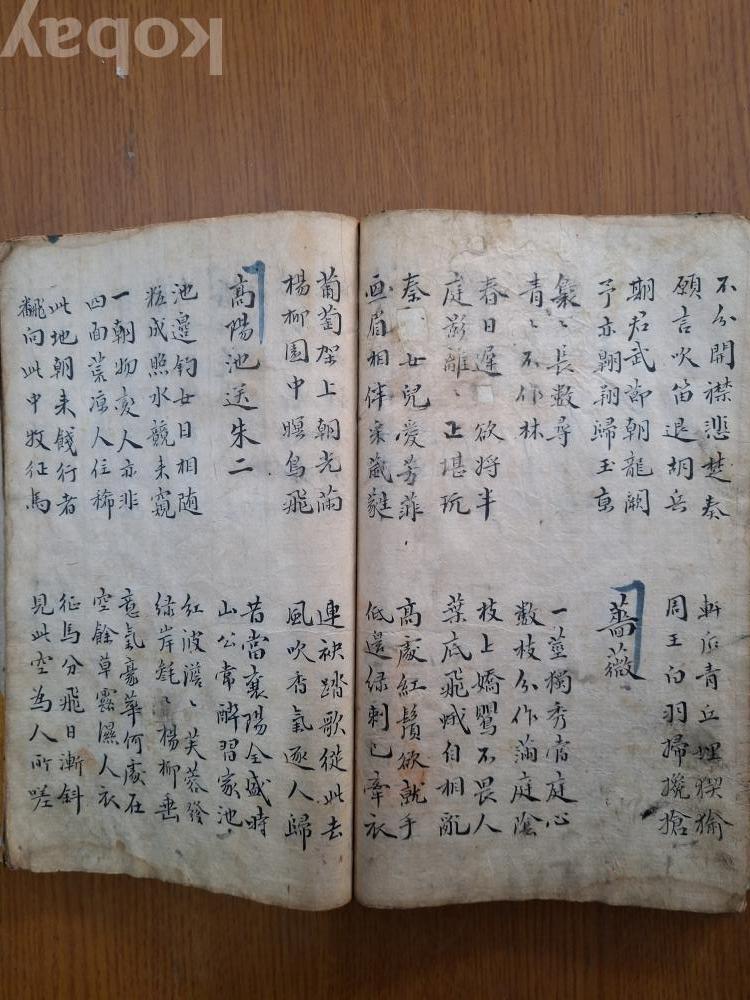 不分開襟悲楚奏
願言吹笛退胡兵
軒后青丘埋猰貐
周王白羽掃攙搶
期君武節朝龍闕
予亦翺翔歸玉京
薔薇
叢〻長數尋
青〻不作林
一莖獨秀當庭心
數枝分作滿庭陰
春日遲欲將半
庭影離〻正堪玩
枝上嬌鶯不畏人
葉底飛蛾自相亂
秦女兒愛芳菲
画眉相伴采葳蕤
高處紅鬚欲就手
低邊綠刺已牽衣
葡萄架上朝光滿
楊柳園中暝鳥飛
連袂踏歌從此去
風吹香氣逐人歸
高陽池送朱二
昔當襄陽全盛時
山公常醉習家池
池邊釣女日相随
粧成照水競来窺
紅波澹〻芙蓉發
绿岸毿〻楊柳垂
一朝物変人亦非
四面荒凉人住稀
意氣豪華何處在
空餘草露濕人衣
此地朝来餞行者
翻向此中牧征馬
征馬分飛日漸斜
見此空為人所嗟
kobay